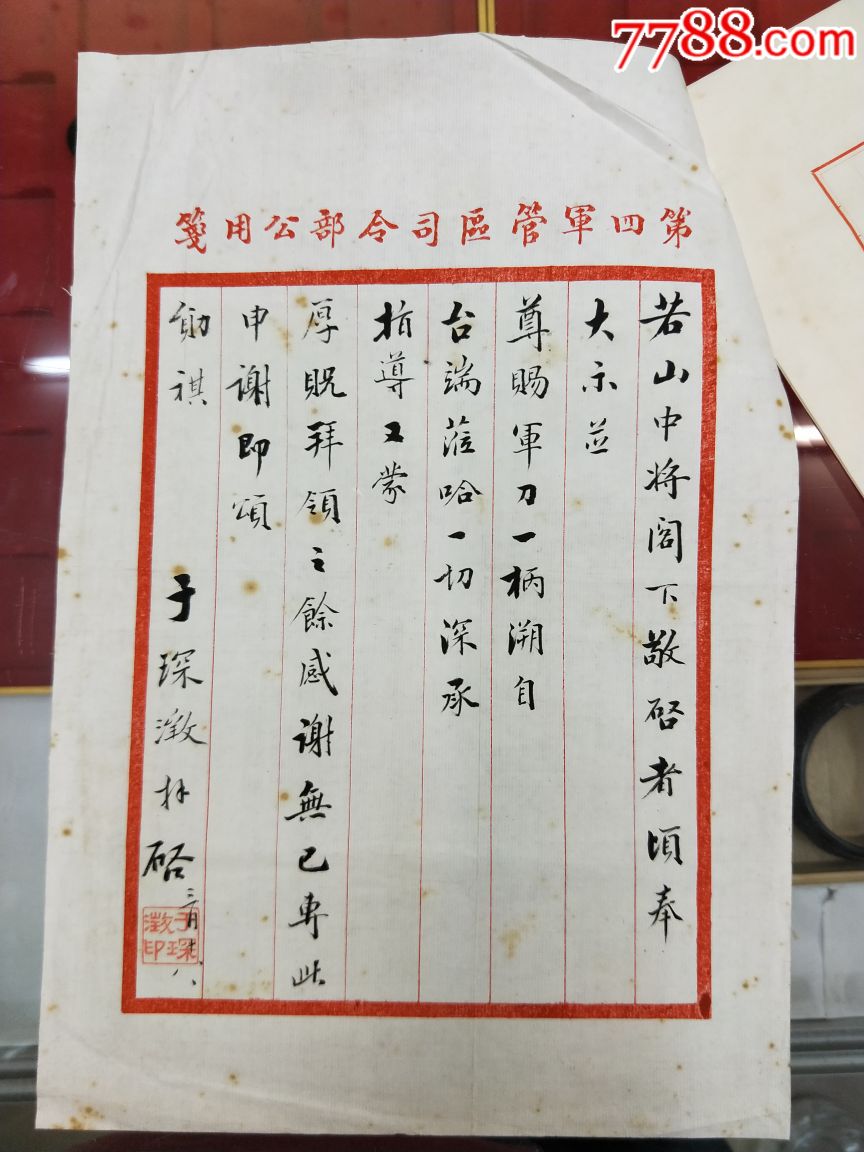 7788.com
第四軍管區司令部公用箋
若山中将閣下敬啓者頃奉
大示並
尊賜軍刀一柄溯自
台端蒞哈一切深承
指導又蒙
厚貺拜領之餘感謝無已專此
申謝即頌
勛祺
于琛澂拜啓
三月十八
于琛澂印